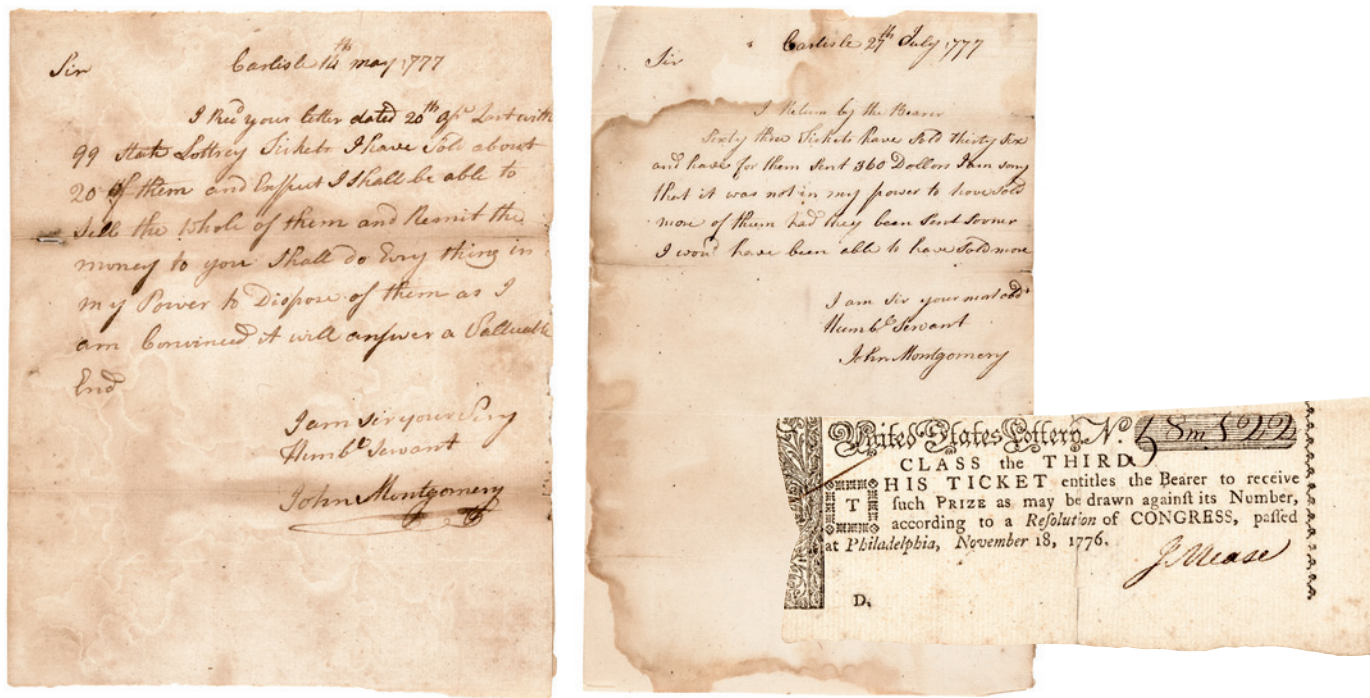 Carlisle 14th may 1777
Sir
I Recd your letter dated 20th apl Last with
99 State Lottrey Tickets I have Sold about
20 of them and Exspect I Shall be able to
Sell the whole of them and Remit the
money to you Shall do Evry thing in
my Power to Dispose of them as I
am Convinced it will answer a Valluable
End
I am sir your Very
Humbe Servant
John Montgomery
Carlisle 27th July 1777
Sir
I Return by the Bearer
Sixty three Tickets have Sold thirty Six
and have for them Sent 360 Dollors I am sory
that it was not in my power to have Sold
more of them had they been Sent Sooner
I woud have been able to have Sold more
I am Sir your most obdt
Humbe Servant
John Montgomery
United States Lottery. No. 58m 522
CLASS the THIRD
THIS TICKET entitles the Bearer to receive
ſuch PRIZE as may be drawn againſt its Number,
according to a Reſolution of CONGRESS, paſſed
at Philadelphia, November 18, 1776.
J Mease
D.